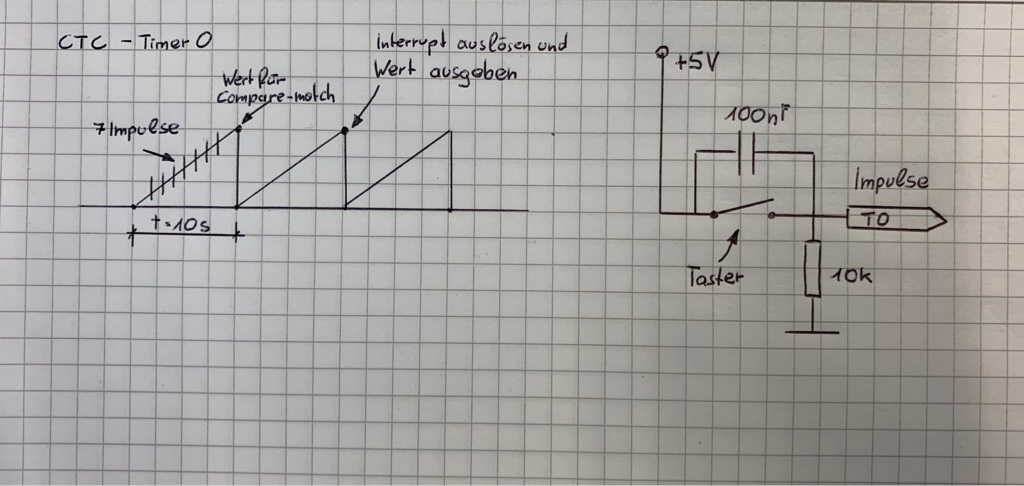 CTC - Timer 0
Interrupt auslösen und
Wert ausgeben
Wert für
Compare-match
7 Impulse
t=10s
+5V
100nF
Impulse
T0
Taster
10k